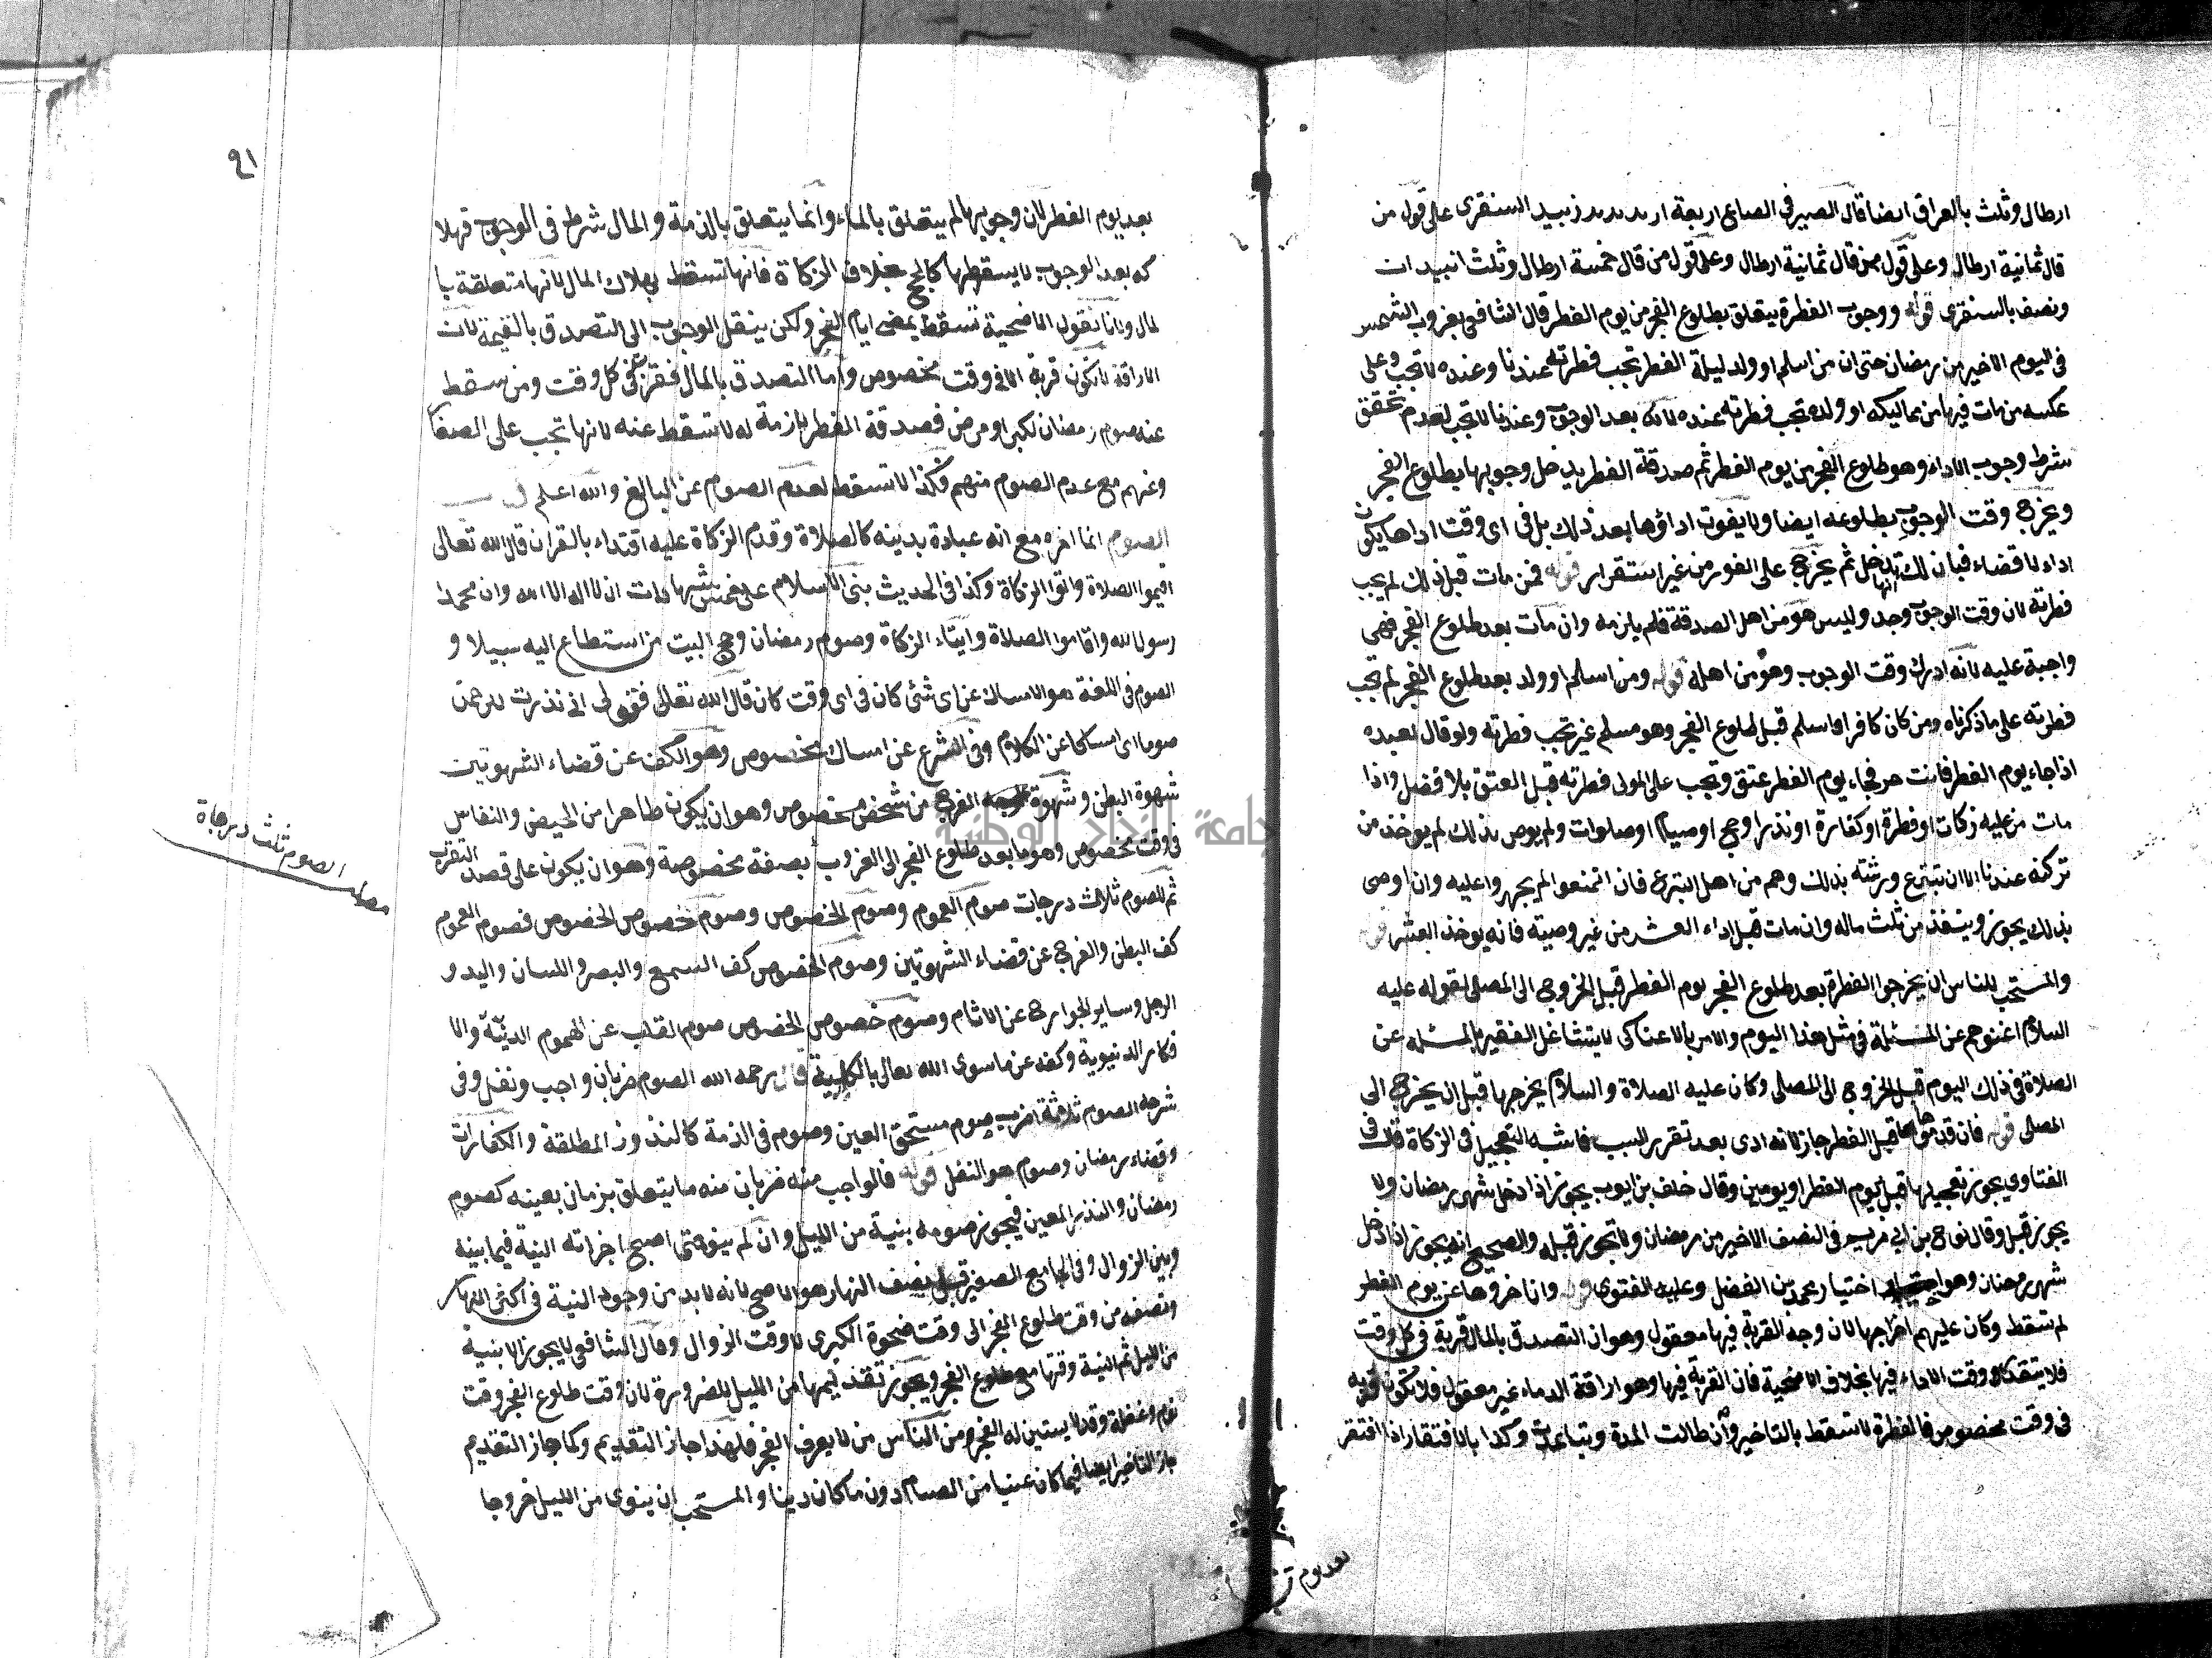 ارطال وثلث بالعراقى ايضا قال الصيرفى الصاع اربعة ازبد بزبيد السنقرى على قول من
قال ثمانية ارطال وعلى قول من قال ثمانية ارطال وعلى قول من قال خمسة ارطال وثلث ازبدان
ونصف بالسنقرى قوله ووجوب الفطرة يتعلق بطلوع الفجر من يوم الفطر قال الشافعى بغروب الشمس
فى اليوم الاخير من رمضان حتى ان من اسلم او ولد ليلة الفطر تجب فطرته عندنا وعنده لا تجب وعلى
عكسه من مات فيها من مماليكه او ولده تجب فطرته عنده لانه بعد الوجوب وعندنا لا تجب لعدم تحقق
شرط وجوب الاداء وهو طلوع الفجر من يوم الفطر ثم صدقة الفطر يدخل وجوبها بطلوع الفجر
ويخرج وقت الوجوب بطلوعه ايضا ولا يفوت اداؤها بعد ذلك بل فى اى وقت اداها يكون
اداء لا قضاء فبان لك انها تدخل ثم يخرج على الفور من غير استقرار قوله فمن مات قبل ذلك لم يجب
فطرته لان وقت الوجوب وجد وليس هو من اهل الصدقة فلم يلزمه وان مات بعد طلوع الفجر فهى
واجبة عليه لانه ادرك وقت الوجوب وهو من اهله قوله ومن اسلم او ولد بعد طلوع الفجر لم تجب
فطرته على ما ذكرناه ومن كان كافرا فاسلم قبل طلوع الفجر وهو مسلم غير تجب فطرته ولو قال لعبده
اذا جاء يوم الفطر فانت حر فجاء يوم الفطر عتق وتجب على المولى فطرته قبل العتق بلا فصل واذا
مات من عليه زكات او فطرة او كفارة او نذر او حج او صيام او صلوات ولم يوص بذلك لم يوخذ من
تركته عندنا الا ان تبترع ورثته بذلك وهم من اهل التبرع فان امتنعوا لم يجبروا عليه وان اوصى
بذلك يجوز وينفذ من ثلث ماله وان مات قبل اداء العشر من غير وصية فانه يوخذ العشر قوله
والمستحب للناس ان يخرجوا الفطرة بعد طلوع الفجر يوم الفطر قبل الخروج الى المصلى لقوله عليه
السلام اغنوهم عن المسئلة فى مثل هذا اليوم والامر بالاغنا كى لا يتشاغل الفقير بالمسئله عن
الصلاة فى ذلك اليوم قبل الخروج الى المصلى وكان عليه الصلاة والسلام يخرجها قبل ان يخرج الى
المصلى قوله فان قدموها قبل الفطر جاز لانه ادى بعد تقرر السبب فاشبه التعجيل فى الزكاة قال فى
الفتاوى يجوز تعجيلها قبل يوم الفطر او يومين وقال خلف بن ايوب يجوز اذا دخل شهر رمضان ولا
يجوز قبل وقال نوح بن ابى مريم فى النصف الاخير من رمضان ولا تجوز قبله والصحيح انه يجوز اذا دخل
شهر رمضان وهو اختيار محمد بن الفضل وعليه الفتوى قوله وان اخروها عن يوم الفطر
لم تسقط وكان عليهم اخراجها لان وجه القربة فيها معقول وهو ان التصدق بالمال قربة فى كل وقت
فلا يتقدر وقت الاداء فيها بخلاف الاضحية فان القربة فيها وهو اراقة الدماء غير معقول فلا تكون قربة
فى وقت مخصوص فالفطرة لا تسقط بالتاخير وان طالت المدة وتباعدت وكذا بالافتقار اذا افتقر
بعد يوم
٩١
بعد يوم الفطر لان وجوبها لم يتعلق بالماء وانما يتعلق بالذمة والمال شرط فى الوجوب فهلا
كه بعد الوجوب لا يسقطها كالحج بخلاف الزكاة فانها تسقط بهلاك المال لانها متعلقة با
لمال ولانا نقول الاضحية تسقط بمضى ايام النحر ولكن ينقل الوجوب الى التصدق بالقيمة لان
الاراقة لا تكون قربة الا فى وقت مخصوص واما التصدق بالمال فقربة فى كل وقت ومن سقط
عنه صوم رمضان لكبر او مرض فصدقة الفطر لازمة له لا تسقط عنه لانها تجب على الصغار
وغيرهم مع عدم الصوم منهم فكذا لا تسقط لعدم الصوم عن البالغ والله اعلم
الصوم انما اخره مع انه عبادة بدينه كالصلاة وقدم الزكاة عليه اقتداء بالقران قال الله تعالى
اقيموا الصلاة واتوا الزكاة وكذا فى الحديث بنى الاسلام على خمس شهادات ان لا اله الا الله وان محمدا
رسول الله واقاموا الصلاة وايتاء الزكاة وصوم رمضان وحج البيت من استطاع اليه سبيلا و
الصوم فى اللغة هو الامساك عن اى شئ كان فى اى وقت كان قال الله تعالى فقولى انى نذرت للرحمن
صوما اى امساكا عن الكلام وفى الشرع عن امساك مخصوص وهو الكف عن قضاء الشهوتين
شهوة البطن وشهوة الفرج من شخص مخصوص وهو ان يكون طاهرا من الحيض والنفاس
فى وقت مخصوص وهو ما بعد طلوع الفجر الى الغروب بصفة مخصوصة وهو ان يكون على قصد التقرب
ثم للصوم ثلاث درجات صوم العموم وصوم الخصوص وصوم خصوص الخصوص فصوم العموم
كف البطن والفرج عن قضاء الشهوتين وصوم الخصوص كف السمع والبصر واللسان واليد و
الرجل وساير الجوارح عن الاثام وصوم خصوص الخصوص صوم القلب عن الهموم الدنيّة والا
فكار الدنيوية وكفه عن ما سوى الله تعالى بالكلية قال رحمه الله الصوم ضربان واجب ونفل وفى
شرحه الصوم ثلاثة اضرب صوم مستحق العين وصوم فى الذمة كالنذور المطلقة والكفارات
وقضاء رمضان وصوم هو النفل قوله فالواجب منه ضربان منه ما يتعلق بزمان بعينه كصوم
رمضان والنذر المعين فيجوز صومه بنية من الليل وان لم ينو حتى اصبح اجزاته النية فيما بينه
وبين الزوال وفى الجامع الصغير قبل نصف النهار وهو الاصح لانه لا بد من وجود النية فى اكثر النهار
ونصفه من وقت طلوع الفجر الى وقت ضحوة الكبرى لا وقت الزوال وقال الشافعى لا يجوز الا بنية
من الليل ثم النية وقتها مع طلوع الفجر ويجوز تقديمها من الليل للضرورة لان وقت طلوع الفجر وقت
نوم وغفلة وقد لا يستبين له الفجر ومن الناس من لا يعرف الفجر فلهذا جاز التقديم وكما جاز التقديم
جاز التاخير ايضا فيما كان عينا من الصيام دون ما كان دينا والمستحب ان ينوى من الليل خروجا
مطلب الصوم ثلث درجاة
جامعة النجاح الوطنية